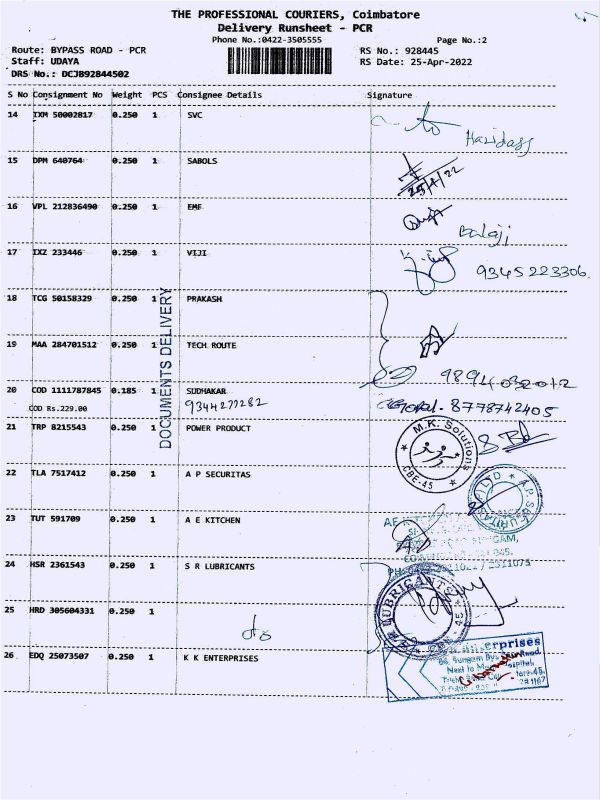 THE PROFESSIONAL COURIERS, Coimbatore
Delivery Runsheet - PCR
Phone No.:0422-3505555
Page No.:2
Route: BYPASS ROAD - PCR
RS No.: 928445
Staff: UDAYA
RS Date: 25-Apr-2022
DRS No.: DCJB92844502
S No Consignment No Weight PCS Consignee Details Signature
14 IXM 50002817 0.250 1 SVC
Haridass
15 DPM 640764 0.250 1 SABOLS
25/4/22
16 VPL 212836490 0.250 1 EMF
Balaji
17 IXZ 233446 0.250 1 VIJI
9345223306.
18 TCG 50158329 0.250 1 PRAKASH
DOCUMENTS DELIVERY
19 MAA 284701512 0.250 1 TECH ROUTE
20 COD 1111787845 0.185 1 SUDHAKAR
COD Rs.229.00
8778742405
21 TRP 8215543 0.250 1 POWER PRODUCT
M.K. Solutions
CBE-45
22 TLA 7517412 0.250 1 A P SECURITAS
23 TUT 591709 0.250 1 A E KITCHEN
24 HSR 2361543 0.250 1 S R LUBRICANTS
25 HRD 305604331 0.250 1
do
26 EDQ 25073507 0.250 1 K K ENTERPRISES
erprises